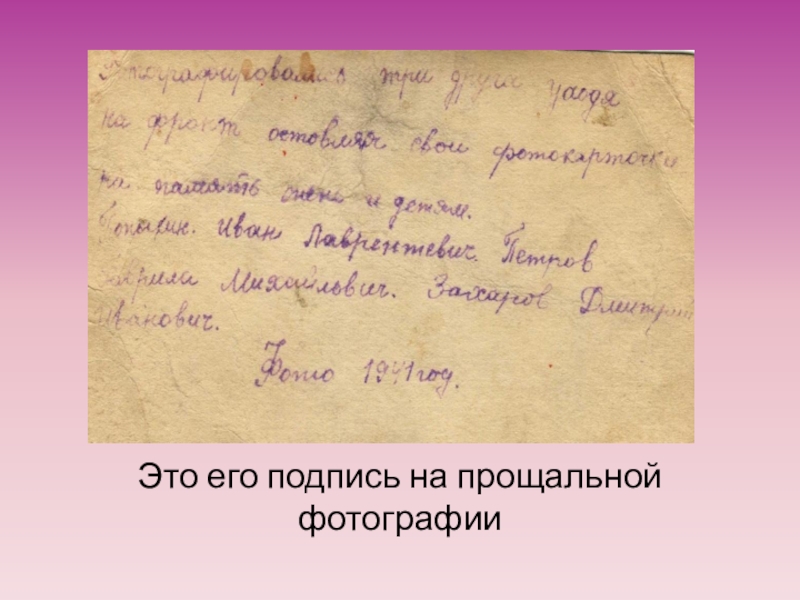 Фотографировались три друга уходя
на фронт оставляя свои фотокарточки
на память жене и детям.
Иван Лаврентевич. Петров
Гаврила Михайлович. Захаров Дмитрий
Иванович.
Фото 1941 год.
Это его подпись на прощальной
фотографии